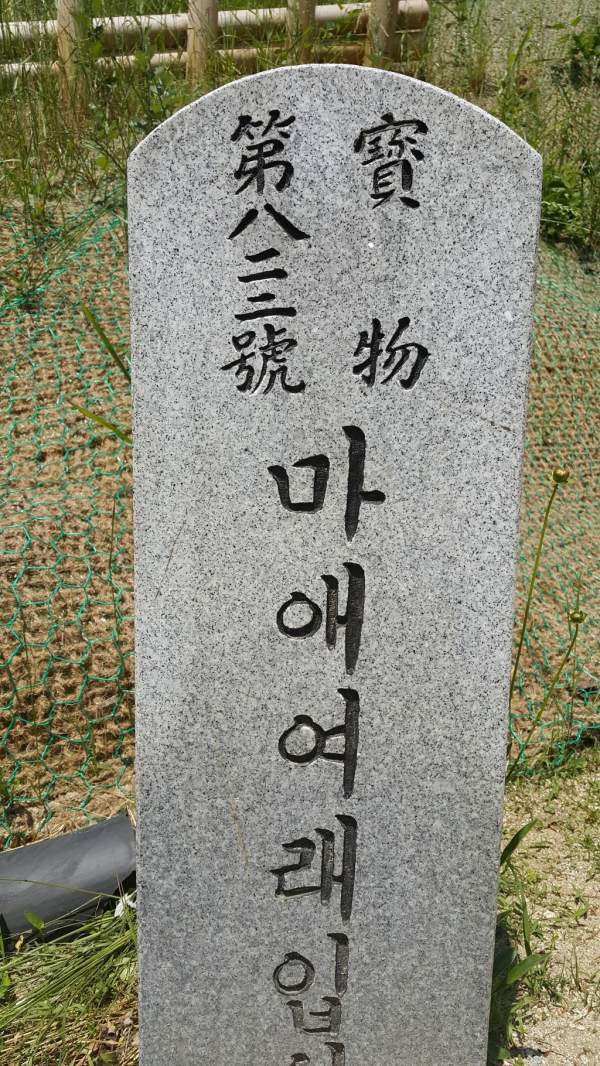 寶物
第八二二號
마애여래입